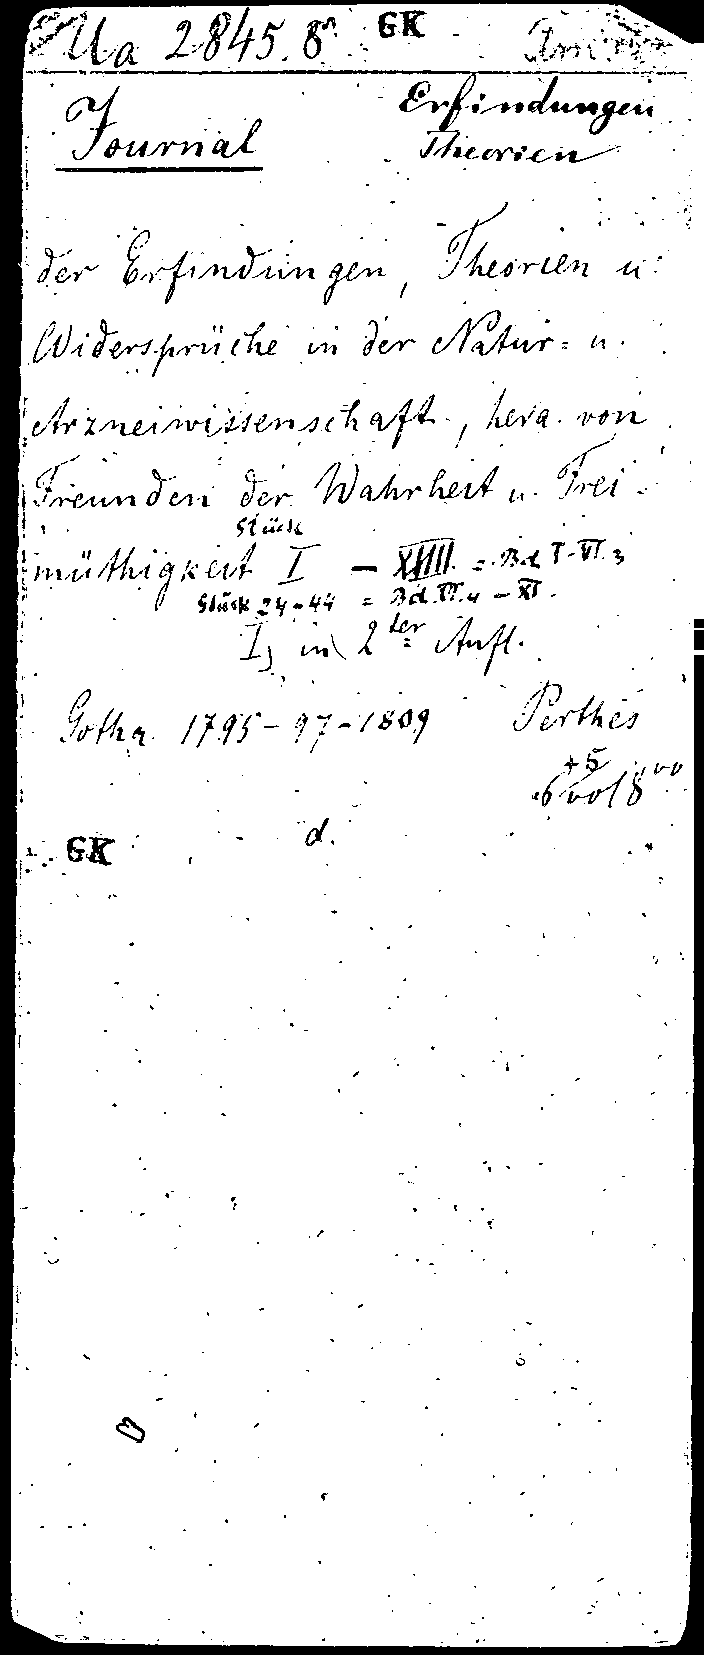 Ua 2845. 8° GK
Journal Erfindungen
Theorien
der Erfindungen, Theorien u.
Widersprüche in der Natur= u.
Arzneiwissenschaft, hera. von
Freunden der Wahrheit u. Frei-
Stück
müthigkeit I – XXIII. = Bd I-VI. 3
Stück 24-44 = Bd. VI. 4 – XI.
I, in 2ter Aufl.
Gotha 1795-97-1809 Perthes
+5
6 vol 8vo
GK d.